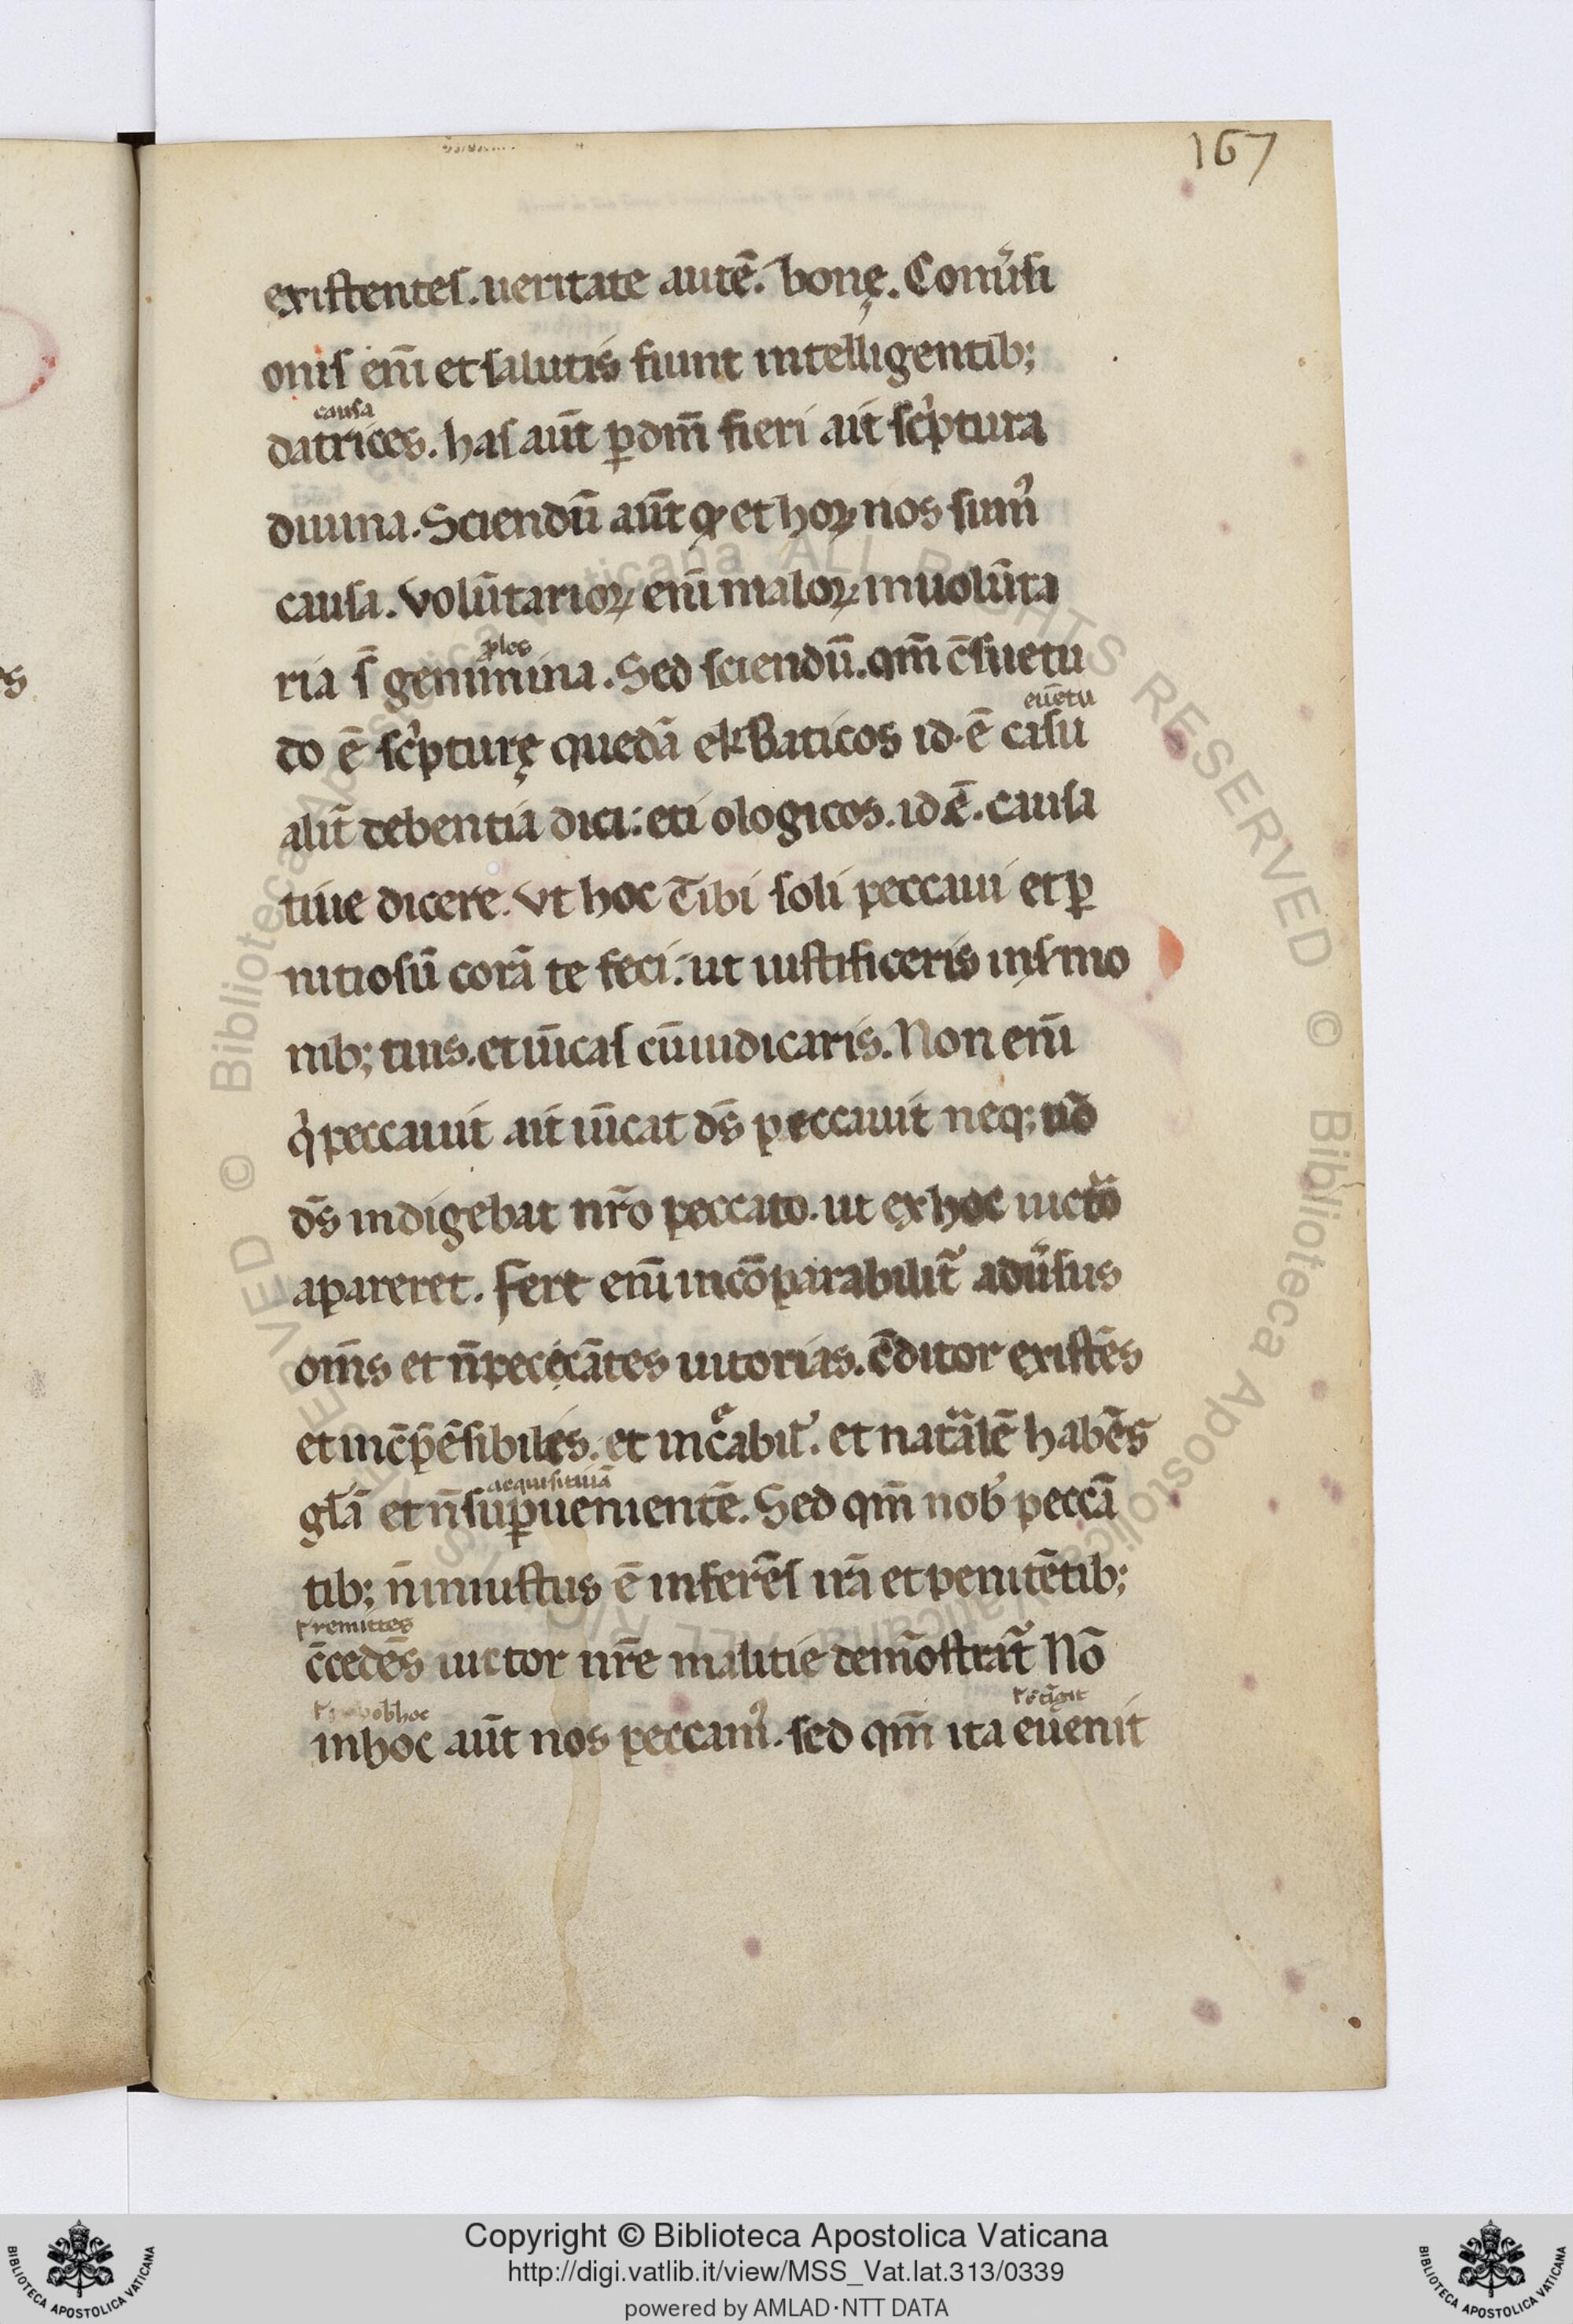 167
existentes. ueritate autē. bonę. Conuͣsi
onis eni̅ et salutis fiunt intelligentib;
causa
datrices. has aut̅ ꝑ dm̅ fieri ait scͥptura
diuina. Sciendu̅ aut̅ ꝙ et hoꝝ nos sumꝰ
causa. Volu̅tarioꝝ eni̅ maloꝝ inuolu̅ta
ria s̅ genimina. Sed sciendu̅. qm̅ c̅suetu
euētu
do ē scͥpturę quedā ekBaticos id. ē casu
alit̅ debentia dici: eti ologicos. id ē. causa
tiue dicere. Vt hoc Tibi soli peccaui et ꝑ
nitiosū corā te feci: ut iustificeris in s̅mo
nib; tuis. et ui̅cas cū iudicaris. Non eni̅
qͥ peccauit ait ui̅cat ds̅ peccauit neq; u̅o
ds̅ indigebat nr̅o peccato. ut ex hoc uictͣo
apareret. Fert eni̅ incōparabilit̅ aduͣsus
om̅s et n̅ peccātes uitorias. c̅ditor existēs
et inc̅p̅ēsibiles. et inc̅ͤabit̅. et natͣalē habēs
acquisitiuā
gl̅ā et n̅ suꝑuenientē. Sed qm̅ nob̅ peccā
tib; n̅ iniustus ē inferēs irā et penitētib;
ł remittēs
c̅cedēs uictor nr̅e malitie demōstrat̅ Nō
ob hoc
in hoc aut̅ nos peccamꝰ. sed qm̅ ita euenit
Copyright © Biblioteca Apostolica Vaticana
http://digi.vatlib.it/view/MSS_Vat.lat.313/0339
powered by AMLAD·NTT DATA
BIBLIOTECA APOSTOLICA VATICANA
BIBLIOTECA APOSTOLICA VATICANA